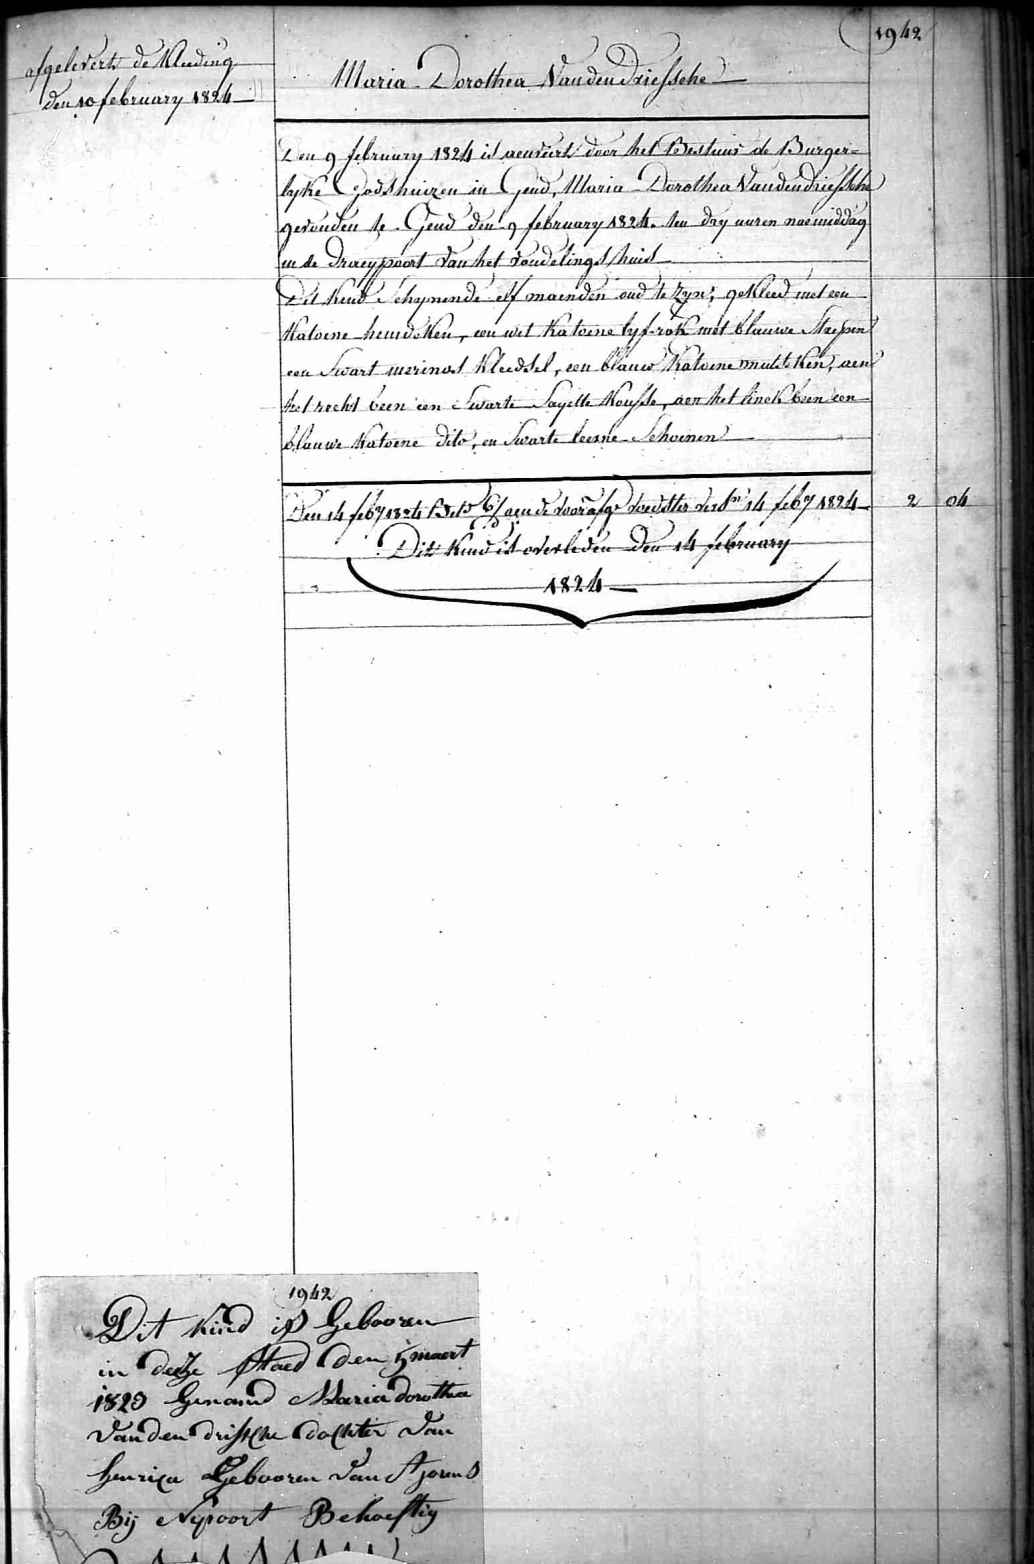 1942
afgelevert de Kleeding
den 10 february 1824
Maria Dorothea Vandendriessche
Den 9 february 1824 is aenveirt door het Bestuur de Burger=
lyke Godshuizen in Gend, Maria Dorothea Vandendriessche
gevonden te Gend den 9 february 1824. ten dry uuren naemiddag
in de draeypoort van het vondelings huis
Dit kind schynende elf maenden oud te zyn; gekleed met een
Katoene hemdeken, een wit Katoene lyf-rok met blauwe Streepen
een Swart merinos Kleedsel, een blauw Katoene mutsken, aen
het recht been een Swarte Sayette Kousse, aen het slinck been een
blauwe Katoene dito, en Swarte leerne Schoenen
Den 14 feb.y 1824 aen de voedster 14 feb.y 1824 2 04
Dit Kind is overleden den 14 february
1824
1942
Dit kind is Gebooren
in deeze Staed den 5 maert
1823 Genamd Maria dorothea
vanden drissche dochter van
henrica Gebooren van St Joreus
Bij Nipoort Behoeftig